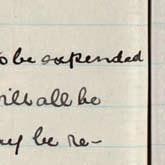 to be expended
will all be
may be re-